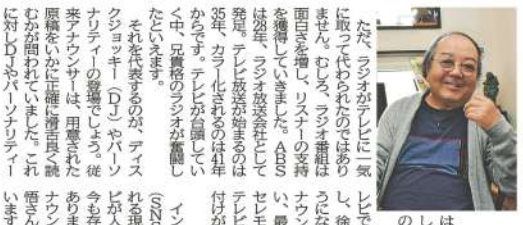 ただ、ラジオがテレビに一気
に取って代わられたのではあり
ません。むしろ、ラジオ番組は
面白さを増し、リスナーの支持
を獲得していきました。ABS
は28年、ラジオ放送会社として
発足。テレビ放送が始まるのは
35年、カラー化されるのは41年
からです。テレビが台頭してい
く中、兄貴格のラジオが奮闘し
たといえます。
それを代表するのが、ディス
クジョッキー（DJ）やパーソ
ナリティーの登場でしょう。従
来アナウンサーは、用意された
原稿をいかに正確に滑舌良く読
むかが問われていました。これ
に対しDJやパーソナリティー
は
し
の
レビで
し、徐
うにな
ナウン
い、最
セレモ
テレビ
付けが
イン
（SN
れる現
ビが人
今も存
ありま
ナウン
悟さん
います